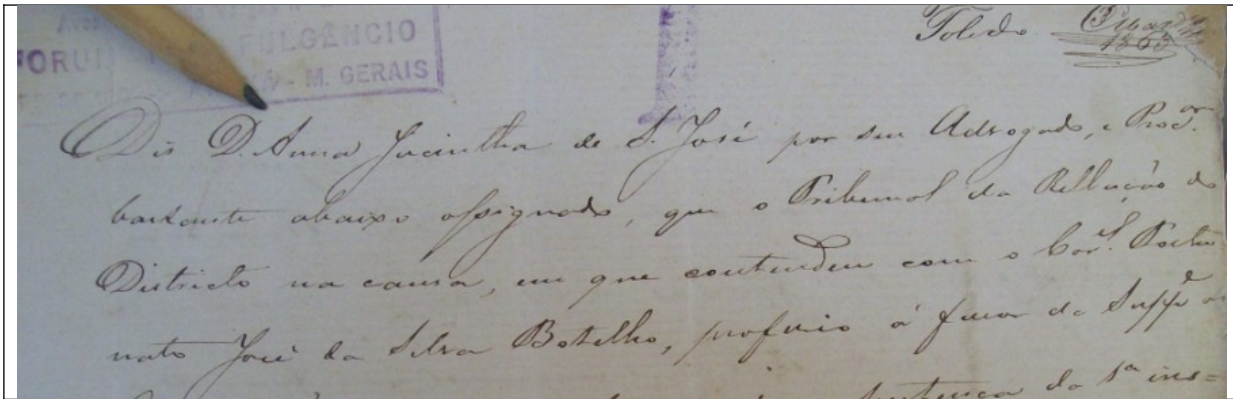 FULGÊNCIO
FORUM
- M. GERAIS
Toledo
1865
Dis D. Anna Jacintha de S. José por seu Advogado, e Proc.or
bastante abaixo assignado, que o Tribunal da Rellação do
Districto na causa, em que contendeu com o Cor.el Fortu
nato José da Silva Botelho, proferio á favor da Suppe o
sentença da 1a ins=